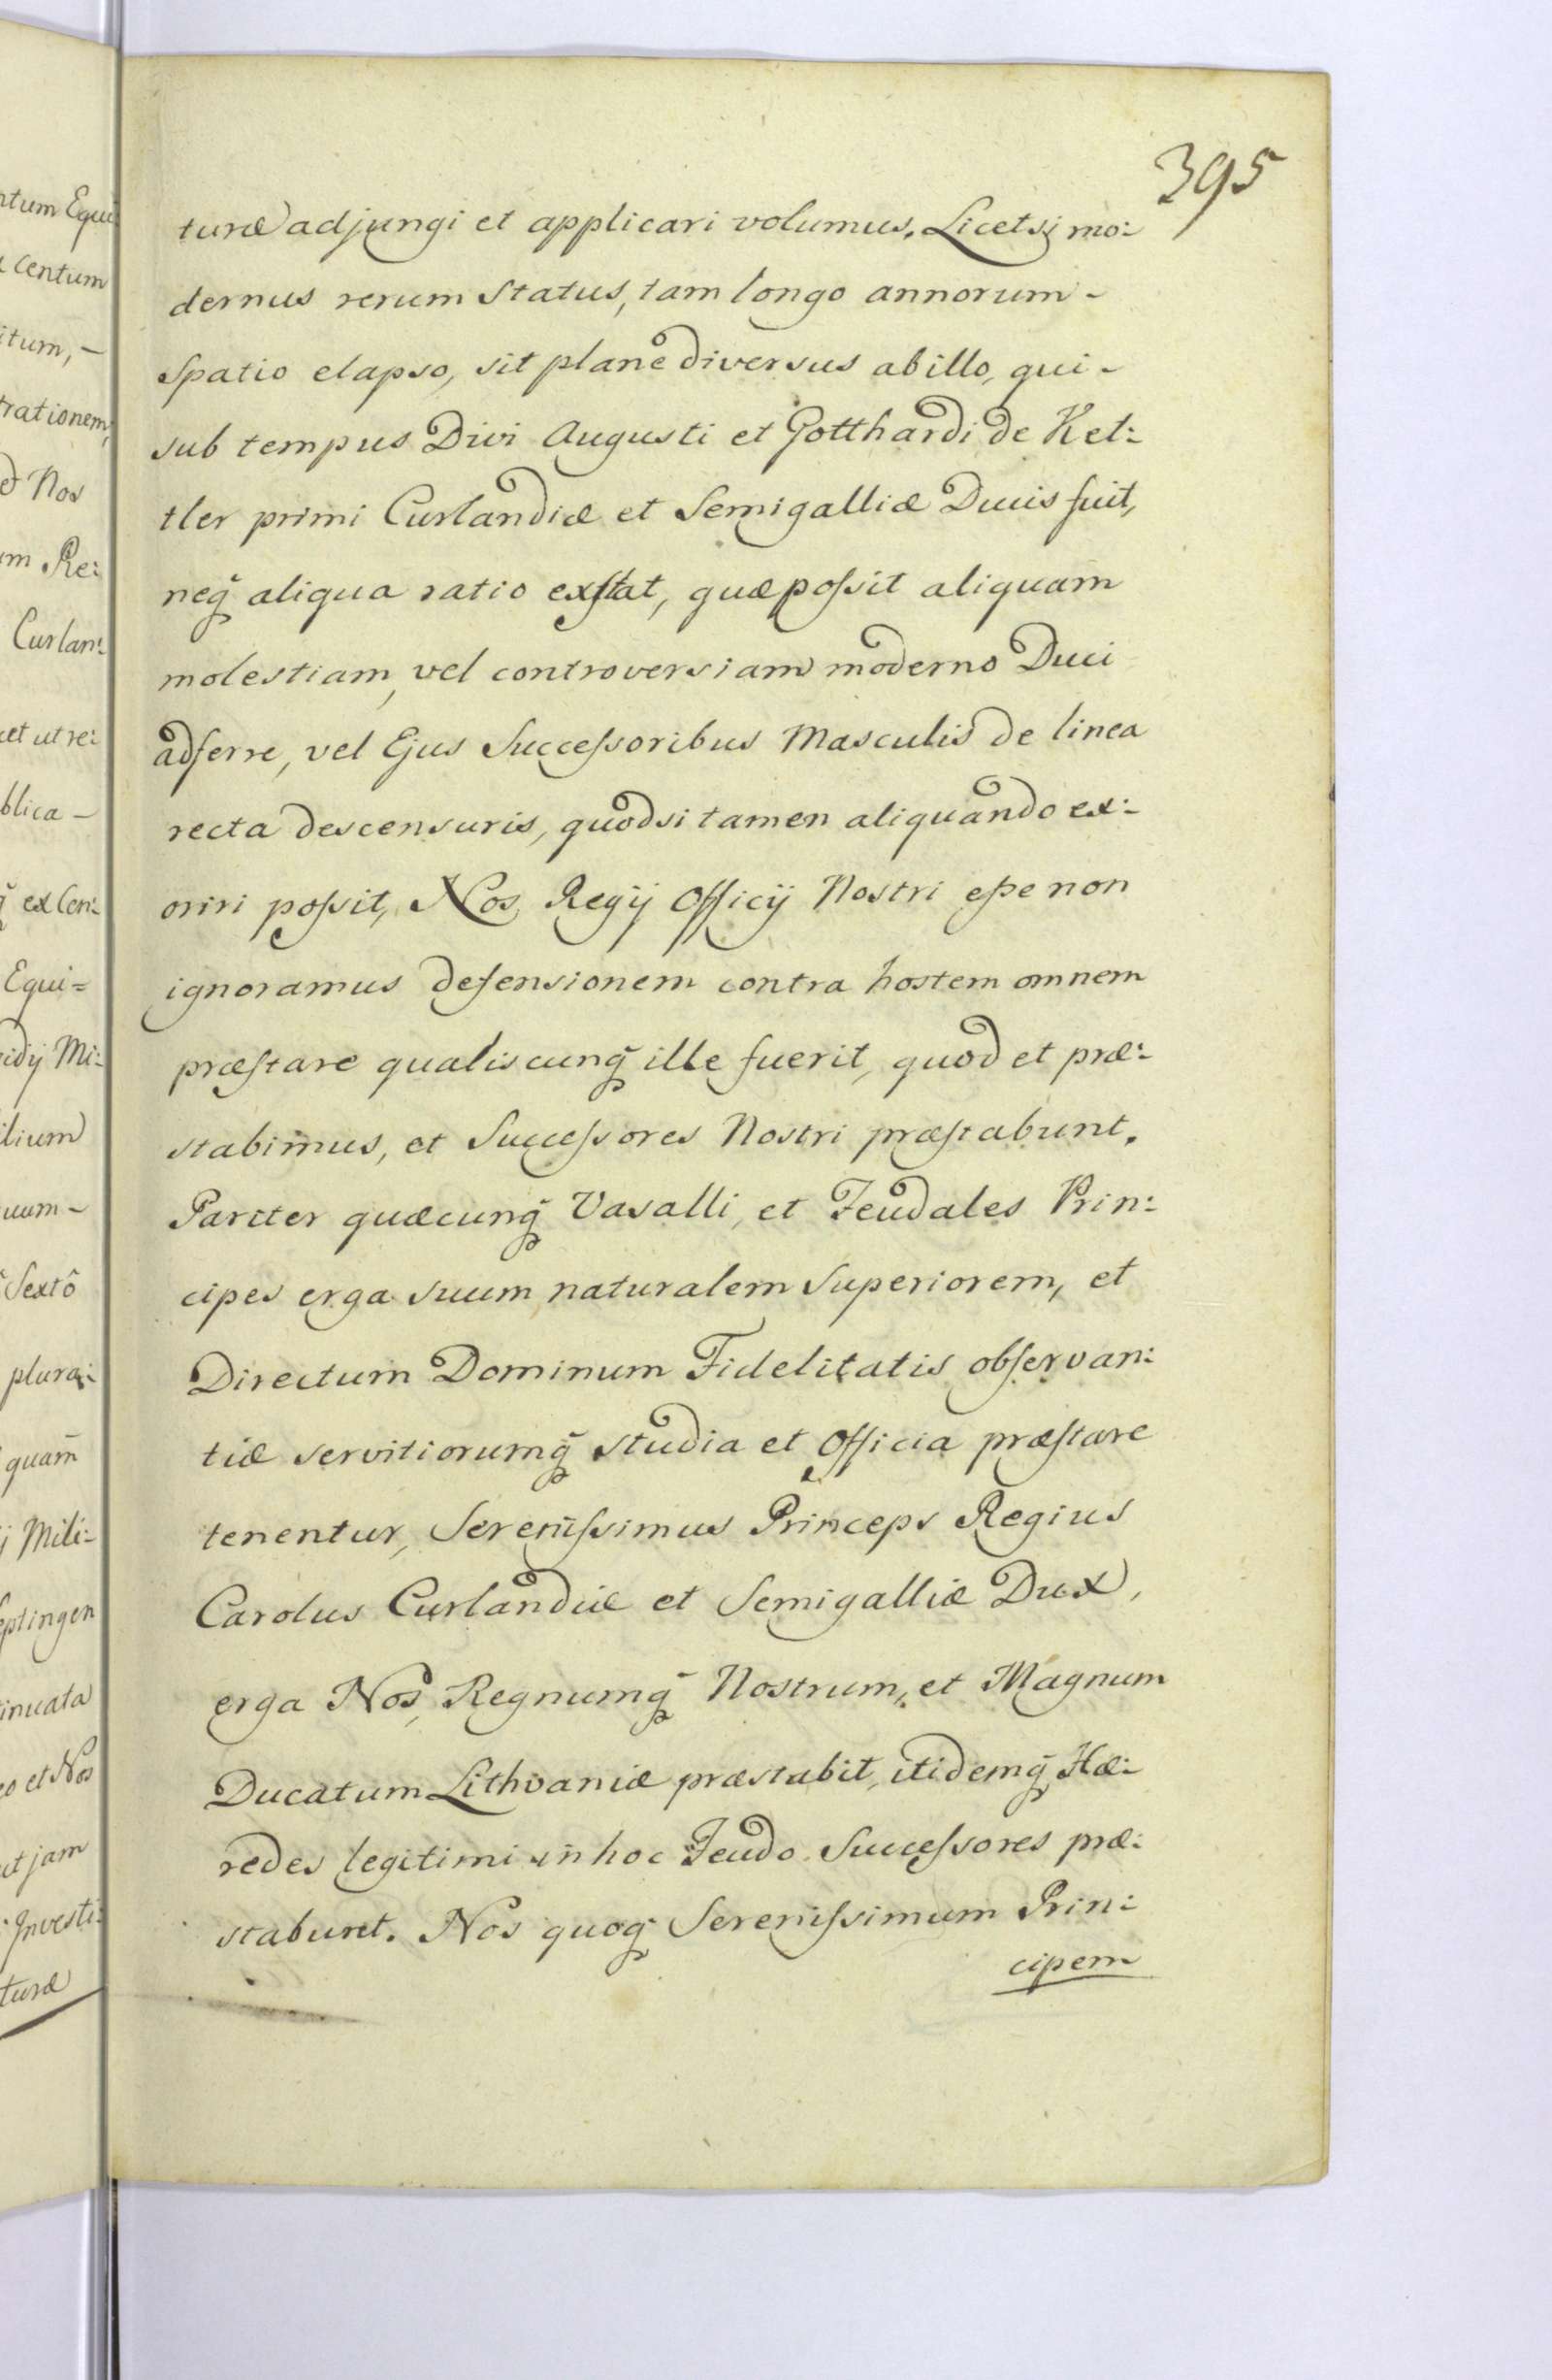 395
turæ adjungi et applicari volumus. Licetsi mo:
dernus rerum Status, tam longo annorum -
Spatio elapso, sit plane diversus ab illo, qui -
sub tempus Divi Augusti et Gotthardi de Ket:
tler primi Curlandiæ et Semigalliæ Ducis fuit,
neq̃ aliqua ratio exstat, quæ possit aliquam
molestiam, vel controversiam moderno Duci
adferre, vel Ejus Successoribus Masculis de linea
recta descensuris, quodsi tamen aliquando ex:
oriri possit, Nos, Regij Officij Nostri esse non
ignoramus defensionem contra hostem omnem
præstare qualiscunq̃ ille fuerit, quod et præ:
stabimus, et Successores Nostri præstabunt.
Pariter quæcunq̃ Vasalli, et Feudales Prin:
cipes erga suum naturalem Superiorem, et
Directum Dominum Fidelitatis observan:
tiæ servitiorumq̃ studia et Officia præstare
tenentur, Serenissimus Princeps Regius
Carolus Curlandiæ et Semigalliæ Dux,
erga Nos, Regnumq̃ Nostrum, et Magnum
Ducatum Lithvaniæ præstabit, itidemq̃ Hæ:
redes legitimi in hoc Feudo Successores præ:
stabunt. Nos quoq̃ Serenissimum Prin:
cipem
ntum Equi
centum
itum, -
rationem,
Nos
um Re:
Curlan:
et ut re:
blica -
ex Cen:
Equi=
idij Mi:
ilium
uum -
Sextô
plura:
quam
j Mili-
eptingen
inuata
eo et Nos
ut jam
Investi:
turæ